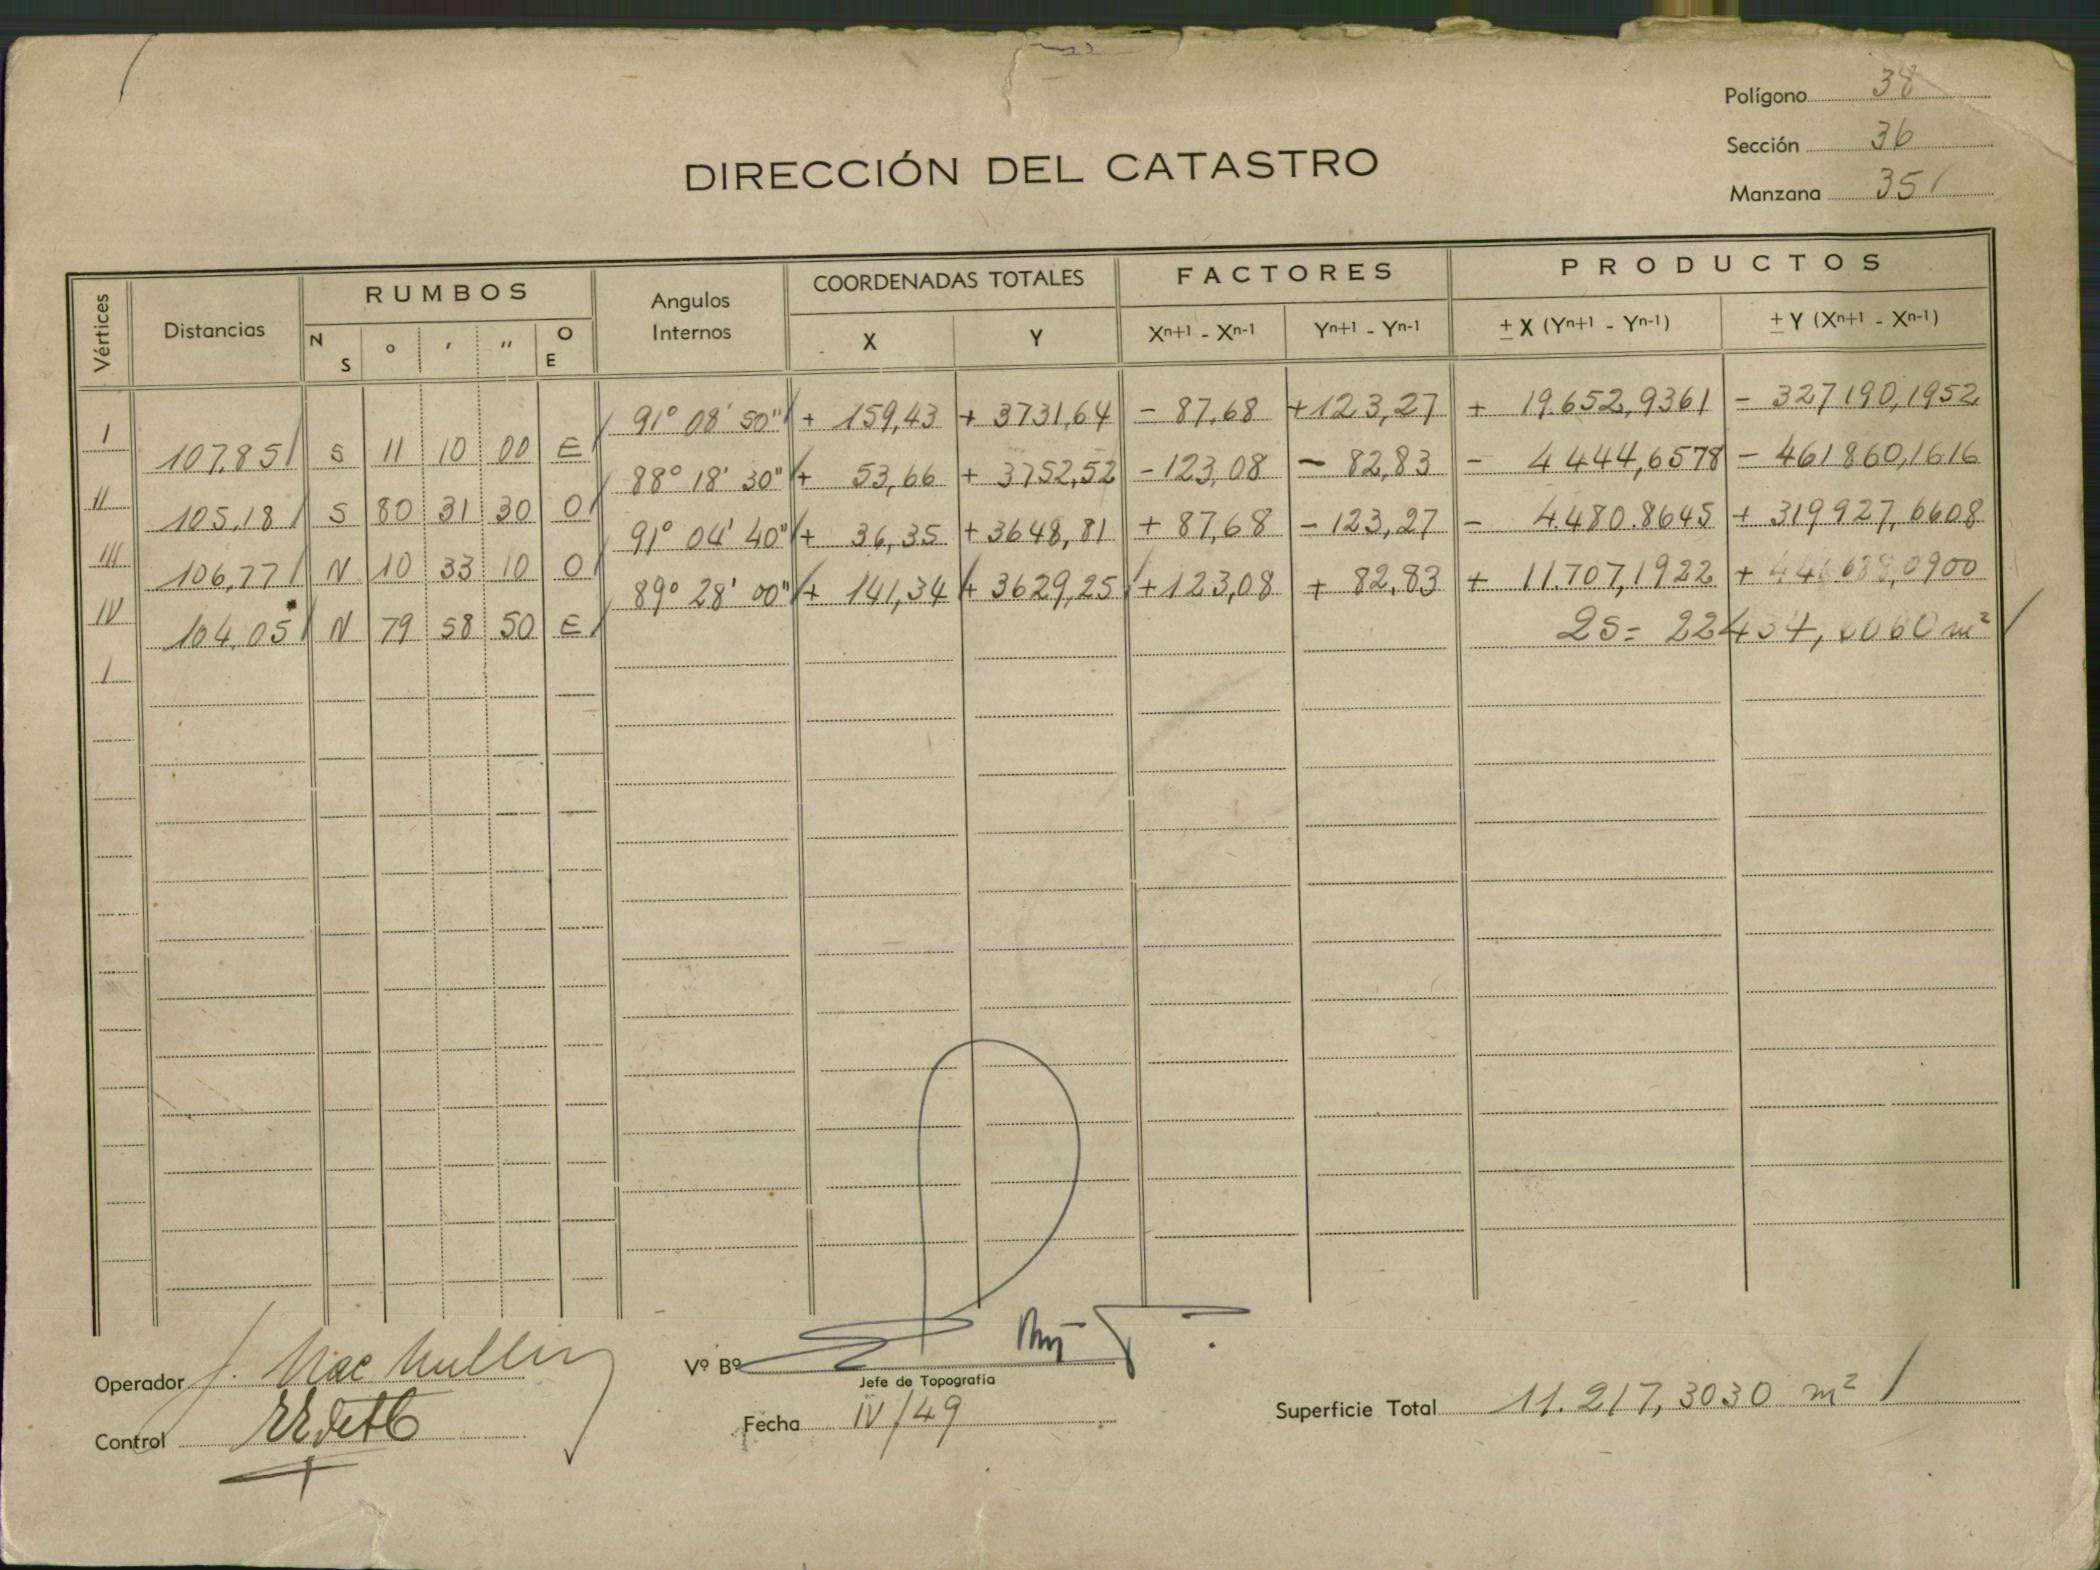 Polígono 38
Sección 36
Manzana 351
DIRECCIÓN DEL CATASTRO
Vértices Distancias RUMBOS Angulos Internos COORDENADAS TOTALES FACTORES PRODUCTOS
N S ° ' " O E X Y Xn+1 - Xn-1 Yn+1 - Yn-1 ± X (Yn+1 - Yn-1) ± Y (Xn+1 - Xn-1)
I 91° 08' 50" + 159,43 + 3731,64 - 87,68 +123,27 + 19.652,9361 - 327190,1952
107,85 S 11 10 00 E
II 88° 18' 30" + 53,66 + 3752,52 - 123,08 - 82,83 - 4444,6578 - 461860,1616
105,18 S 80 31 30 O
III 91° 04' 40" + 36,35 + 3648,81 + 87,68 - 123,27 - 4.480.8645 + 319927,6608
106,77 N 10 33 10 O
IV 89° 28' 00" + 141,34 + 3629,25 + 123,08 + 82,83 + 11.707,1922 +
104,05 N 79 58 50 E
I
2S=
Operador J. Mac
Control
Vº Bº
Jefe de Topografía
Fecha IV/49
Superficie Total 11.217,3030 m²